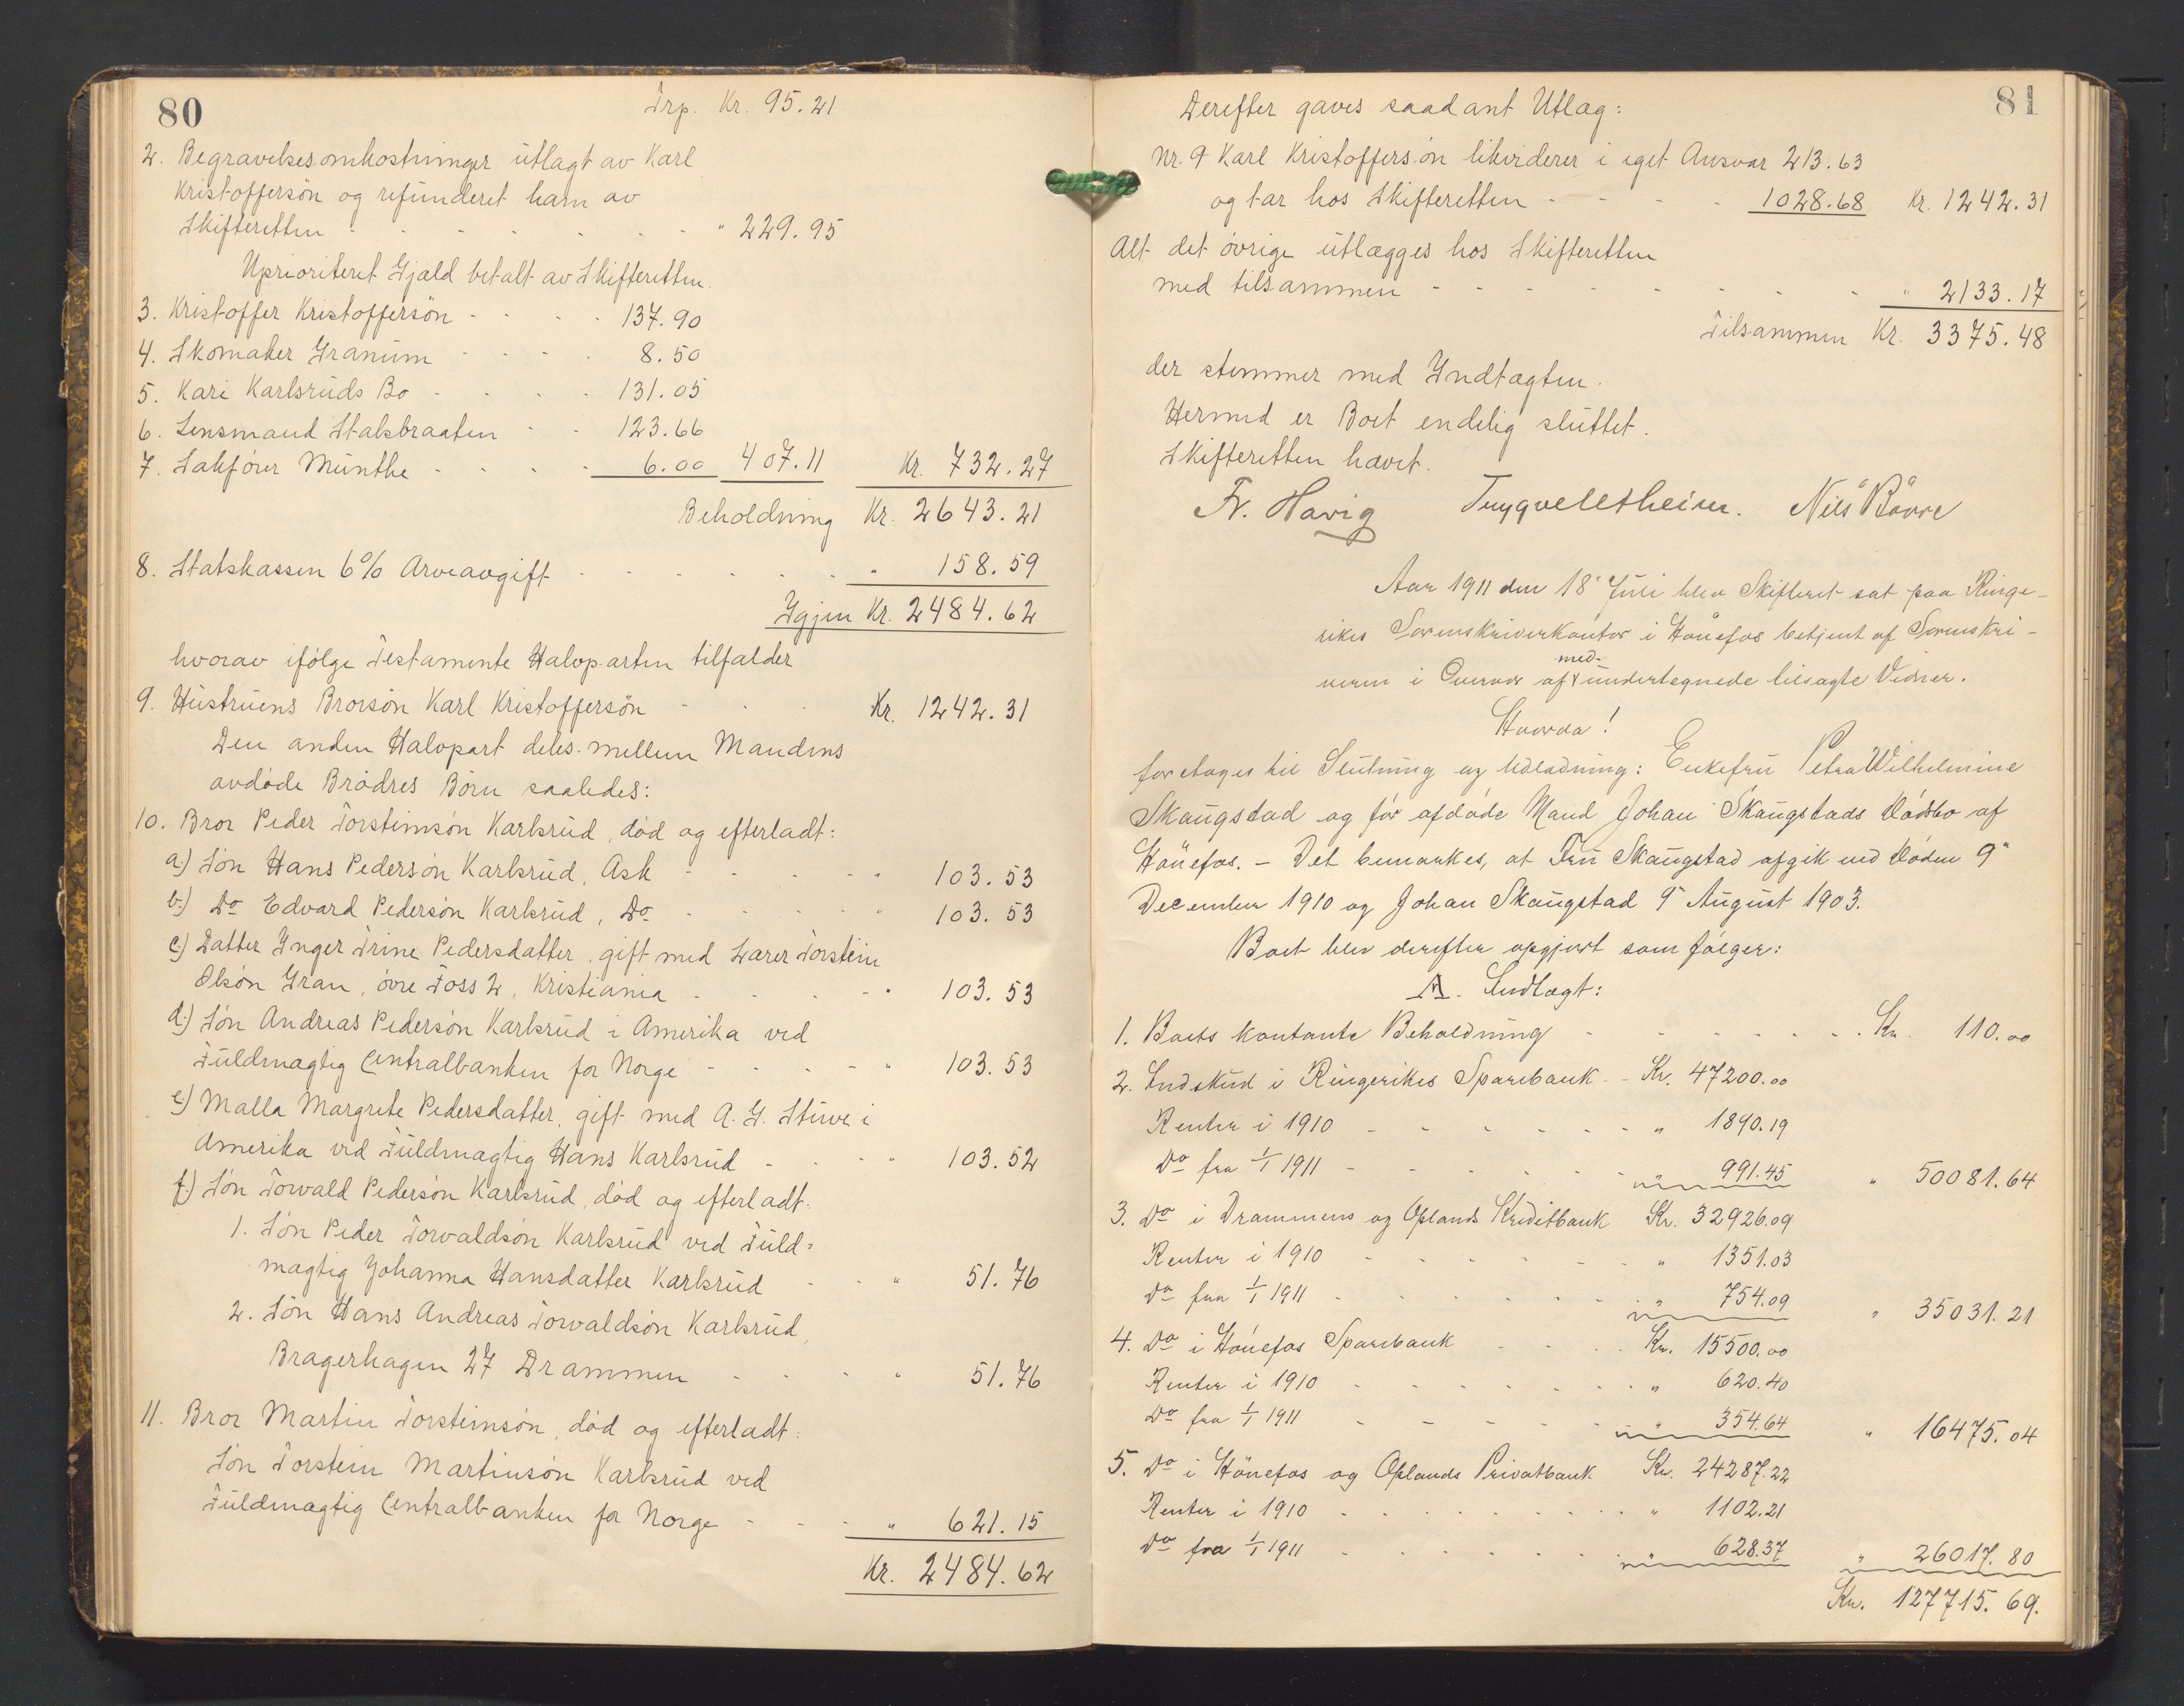 80
Trp. Kr. 95.21
2. Begravelsesomkostninger utlagt av Karl
Kristoffersön og refunderet ham av
Skifteretten - - - - - - - " 229.95
Uprioriteret Gjæld betalt av Skifteretten.
3. Kristoffer Kristoffersön - - - - 137.90
4. Skomaker Granum - - - - 8.50
5. Kari Karlsruds Bo - - - - 131.05
6. Lensmand Stalsbraaten - - 123.66
7. Sakförer Munthe - - - - 6.00 407.11 Kr. 732.27
Beholdning Kr. 2643.21
8. Statskassen 6% Arveavgift - - - - - - " 158.59
Igjen Kr. 2484.62
hvorav ifölge Testamente Halvparten tilfalder
9. Hustruens Brorsön Karl Kristoffersön - - - Kr. 1242.31
Den anden Halvpart deles mellem Mandens
avdöde Brödres Börn saaledes:
10. Bror Peder Torsteinsön Karlsrud, död og efterladt:
a) Sön Hans Pedersön Karlsrud, Ask - - - - - " 103.53
b.) Do Edvard Pedersön Karlsrud, Do - - - - " 103.53
c) Datter Inger Trine Pedersdatter, gift med Lærer Torstein
Olsön Gran, övre Foss 2, Kristiania - - - - - " 103.53
d.) Sön Andreas Pedersön Karlsrud i Amerika ved
Fuldmægtig Centralbanken for Norge - - - - - " 103.53
e) Malla Margrete Pedersdatter, gift med A. G. Sturve i
Amerika ved Fuldmægtig Hans Karlsrud - - - - " 103.52
f.) Sön Torvald Pedersön Karlsrud, död og efterladt:
1. Sön Peder Torvaldsön Karlsrud ved Fuld=
mægtig Johanna Hansdatter Karlsrud - - " 51.76
2. Sön Hans Andreas Torvaldsön Karlsrud,
Bragerhagen 27 Drammen - - - - " 51.76
11. Bror Martin Torsteinsön, död og efterladt:
Sön Torstein Martinsön Karlsrud ved
Fuldmægtig Centralbanken for Norge - - - " 621.15
Kr. 2484.62
81
Derefter gaves saadant Utlæg:
Nr. 9 Karl Kristoffersön likviderer i eget Ansvar 213.63
og tar hos Skifteretten - - - - 1028.68 Kr. 1242.31
Alt det övrige utlægges hos Skifteretten
med tilsammen - - - - - - - - - " 2133.17
Tilsammen Kr. 3375.48
der stemmer med Indtægten.
Hermed er Boet endelig sluttet.
Skifteretten hævet.
Fr. Havig Nils Bövre
Aar 1911 den 18' Juli blev Skifteret sat paa Ringe-
rikes Sorenskriverkontor i Hönefos betjent af Sorenskri-
veren i Overvær af med-undertegnede tilsagte Vidner.
Hvorda!
foretoges til Slutning og Udlodning: Enkefru Petra Wilhelmine
Skaugstad og för afdöde Mand Johan Skaugstads Dödsbo af
Hönefos. - Det bemærkes, at Fru Skaugstad afgik ved Döden 9"
December 1910 og Johan Skaugstad 9" August 1903.
Boet blev derefter opgjort som fölger:
A. Indtægt:
1. Boets kontante Beholdning - - - - - - - Kr. 110.00
2. Indskud i Ringerikes Sparebank - Kr. 47200.00
Renter i 1910 - - - - - - - " 1890.19
Do fra 1/1 1911 - - - - - - " 991.45 " 50081.64
3. Do i Drammens og Oplands Kreditbank Kr. 32926.09
Renter i 1910 - - - - - - - " 1351.03
Do fra 1/1 1911 - - - - - - - " 754.09 " 35031.21
4. Do i Hönefos Sparebank - - - Kr. 15500.00
Renter i 1910 - - - - - - - " 620.40
Do fra 1/1 1911 - - - - - - " 354.64 " 16475.04
5. Do i Hönefos og Oplands Privatbank Kr. 24287.22
Renter i 1910 - - - - - - - - " 1102.21
Do fra 1/1 1911 - - - - - - " 628.37 " 26017.80
Kr. 127715.69.